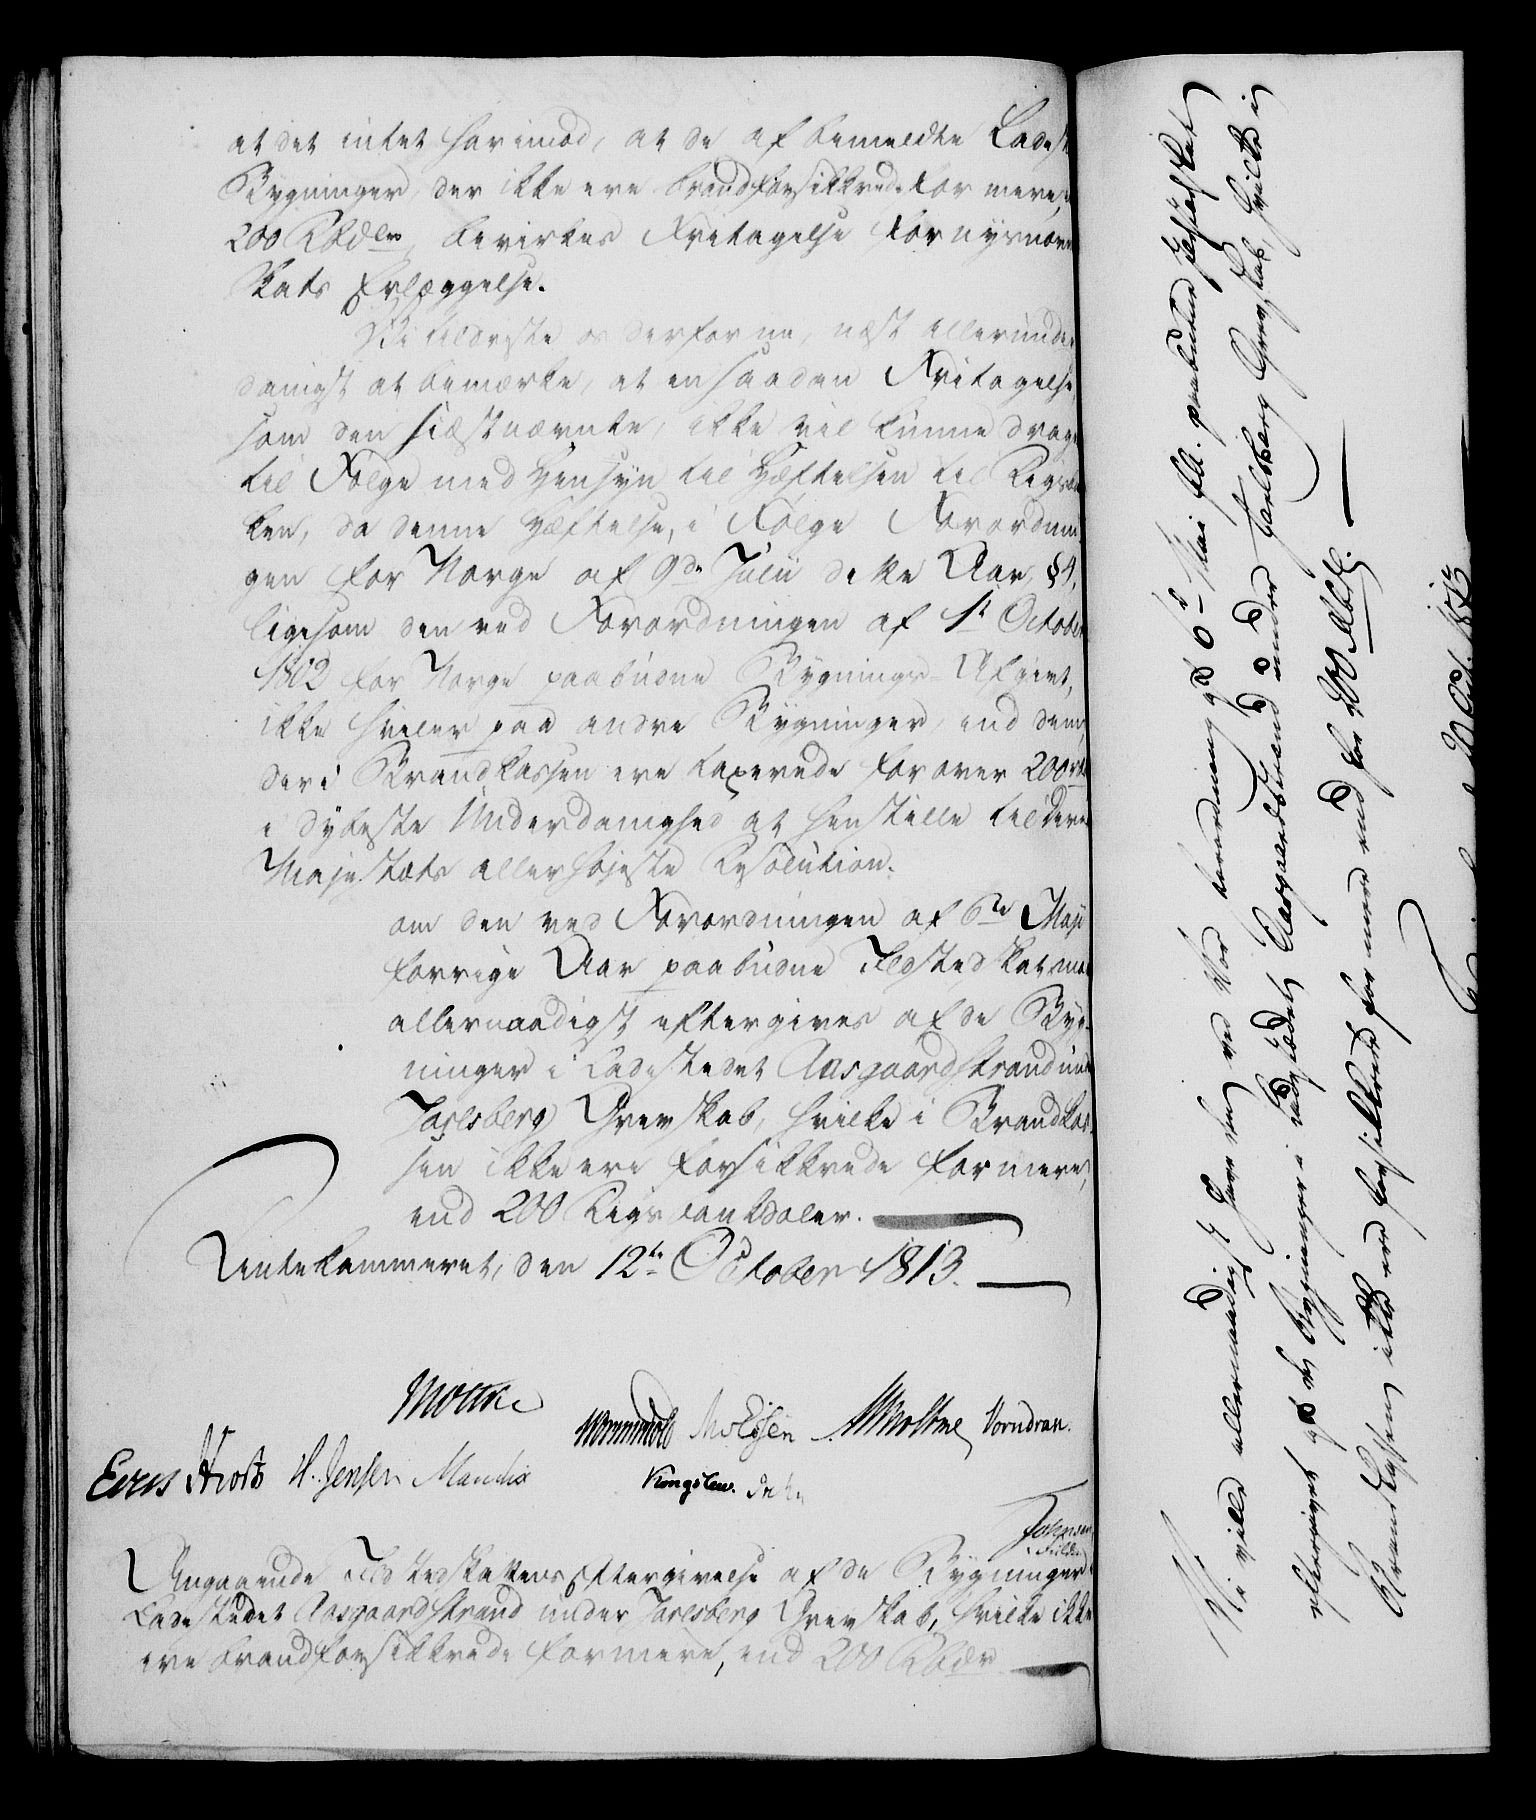 at det intet har imod, at de af bemeldte Ladest
Bygninger, der ikke ere brandforsikkrede for mere,
200 Rbdlr, bevirkes Fritagelse for nysnævn
Skats Erlæggelse.
Vi tildriste os derfor nu, næst allerunder
danigst at bemærke, at en saadan Fritagelse
som den siæstnævnte, ikke vil kunne drage
til Følge med Hensyn til Hæftelsen til Rigsban
ken, da denne Hæftelse, i Følge Forordnin
gen for Norge af 9de Julii dette Aar, §4,
ligesom den ved Forordningen af 1t October
1802 for Norge paabudne Bygnings-Afgivt,
ikke hviler paa andre Bygninger, end dem,
der i Brandkassen ere taxerede for over 200 rd
i dybeste Underdanighed at henstille til Deres
Majestæts allerhøjeste Resolution.
om den ved Forordningen af 6te Maji
forrige Aar paabudne Ildstedskat maa
allernaadigst eftergives af de Byg-
ninger i Ladestedet Aasgaardstrand unde
Jarlsberg Grevskab, hvilke i Brandkas
sen ikke ere forsikkrede for mere,
end 200 Rigsbankdaler.
Rentekammeret, den 12te October 1813.
Moltke
Wormskiold Molsen Vorndran.
Eers Hiort H. Jensen Mandix
Kongslew.
Johnsen
Angaaende Ildstedskattens Eftergivelse af de Bygninger i
Ladestedet Aasgaardstrand under Jarlsberg Grevskab, hvilke ikke
ere brandforsikkrede for mere, end 200 Rbdr
Vi ville allernaadigst have den ved Vor Forordning af 6te Maj f. A. paabudne Ildstedskat
eftergivet af de Bygninger i Ladestedet Aasgaardstrand under Jarlsberg Grevskab, hvilke i
Brandkassen ikke ere forsikkrede for mere end for 200 Rbdl.